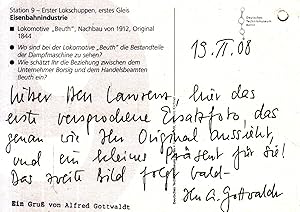 Station 9 – Erster Lokschuppen, erstes Gleis
Eisenbahnindustrie
■ Lokomotive „Beuth“, Nachbau von 1912, Original
1844
● Wo sind bei der Lokomotive „Beuth“ die Bestandteile
der Dampfmaschine zu sehen?
● Wie schätzt Ihr die Beziehung zwischen dem
Unternehmer Borsig und dem Handelsbeamten
Beuth ein?
Deutsches
Technikmuseum
Berlin
19. II. 08
Lieber Herr Lawrenz, hier das
erste versprochene Ersatzfoto, das
genau wie Ihr Original aussieht,
und ein kleines Präsent für Sie!
Das zweite Bild folgt bald –
Ihr A. Gottwaldt
Ein Gruß von Alfred Gottwaldt